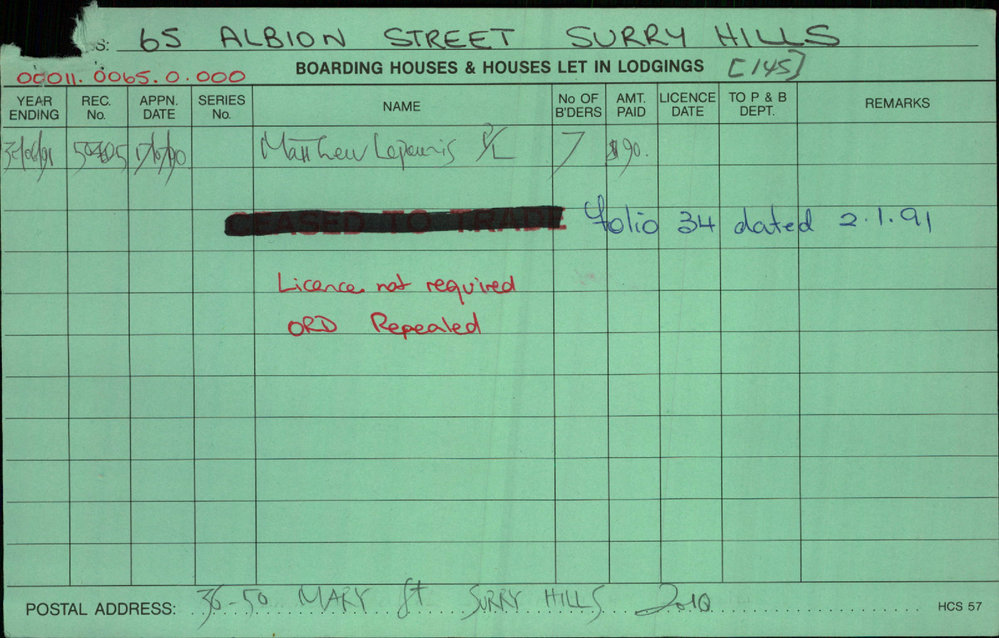 S: 65 ALBION STREET SURRY HILLS
00011.0065.0.000 BOARDING HOUSES & HOUSES LET IN LODGINGS [145]
YEAR ENDING REC. No. APPN. DATE SERIES No. NAME No OF B'DERS AMT. PAID LICENCE DATE TO P & B DEPT. REMARKS
30/06/91 Matthew P/L 7 $90.
CEASED TO TRADE folio 34 dated 2.1.91
Licence not required
ORD Repealed
POSTAL ADDRESS: 36-50 MARY St SURRY HILLS 2010 HCS 57